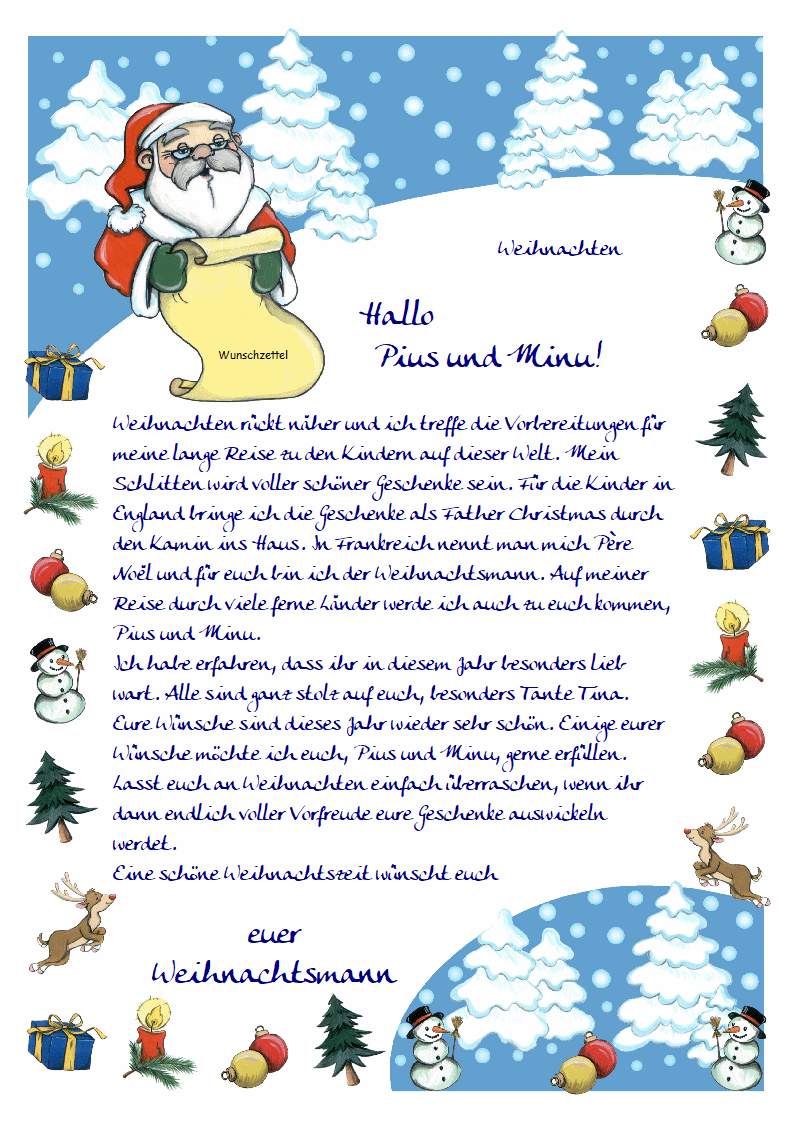 Weihnachten
Hallo
Pius und Minu!
Wunschzettel
Weihnachten rückt näher und ich treffe die Vorbereitungen für
meine lange Reise zu den Kindern auf dieser Welt. Mein
Schlitten wird voller schöner Geschenke sein. Für die Kinder in
England bringe ich die Geschenke als Father Christmas durch
den Kamin ins Haus. In Frankreich nennt man mich Père
Noël und für euch bin ich der Weihnachtsmann. Auf meiner
Reise durch viele ferne Länder werde ich auch zu euch kommen,
Pius und Minu.
Ich habe erfahren, dass ihr in diesem Jahr besonders lieb
wart. Alle sind ganz stolz auf euch, besonders Tante Tina.
Eure Wünsche sind dieses Jahr wieder sehr schön. Einige eurer
Wünsche möchte ich euch, Pius und Minu, gerne erfüllen.
Lasst euch an Weihnachten einfach überraschen, wenn ihr
dann endlich voller Vorfreude eure Geschenke auswickeln
werdet.
Eine schöne Weihnachtszeit wünscht euch
euer
Weihnachtsmann